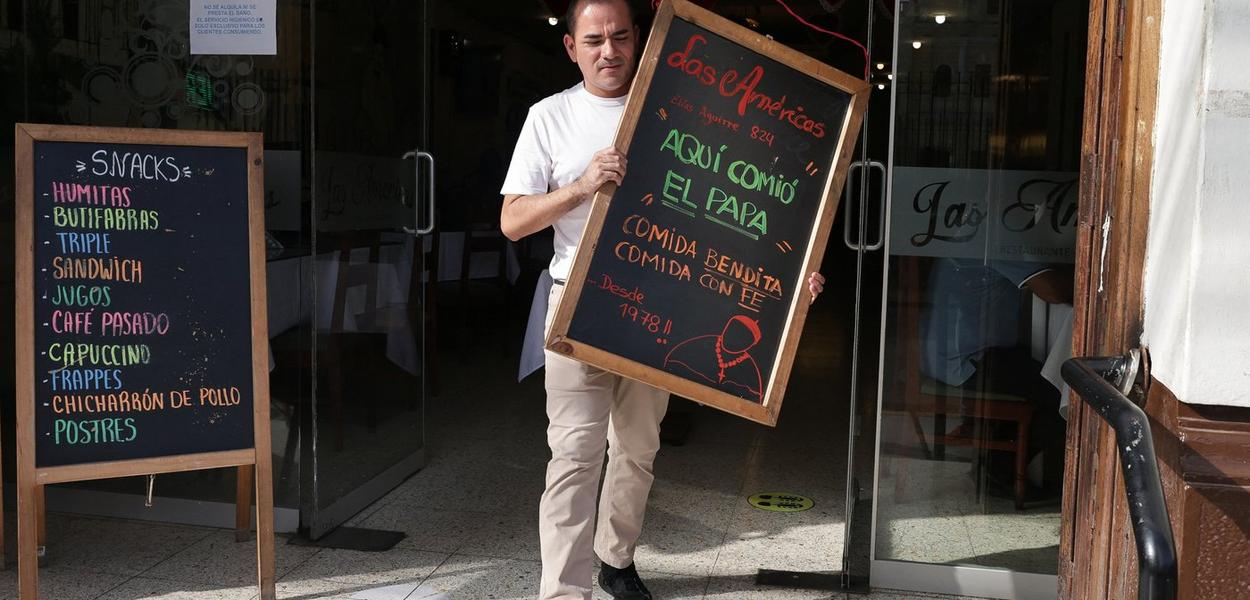 NO SE ALQUILA NI SE
PRESTA EL BAÑO.
EL SERVICIO HIGIENICO ES
SOLO EXCLUSIVO PARA LOS
CLIENTES CONSUMIENDO.
SNACKS
- HUMITAS
- BUTIFARRAS
- TRIPLE
- SANDWICH
- JUGOS
- CAFÉ PASADO
- CAPUCCINO
- FRAPPES
- CHICHARRÓN DE POLLO
- POSTRES
Las Américas
Elías Aguirre 824
AQUÍ COMIÓ
EL PAPA
COMIDA BENDITA
COMIDA CON FE
Desde
1978!!
Las Am
RESTAURANTE